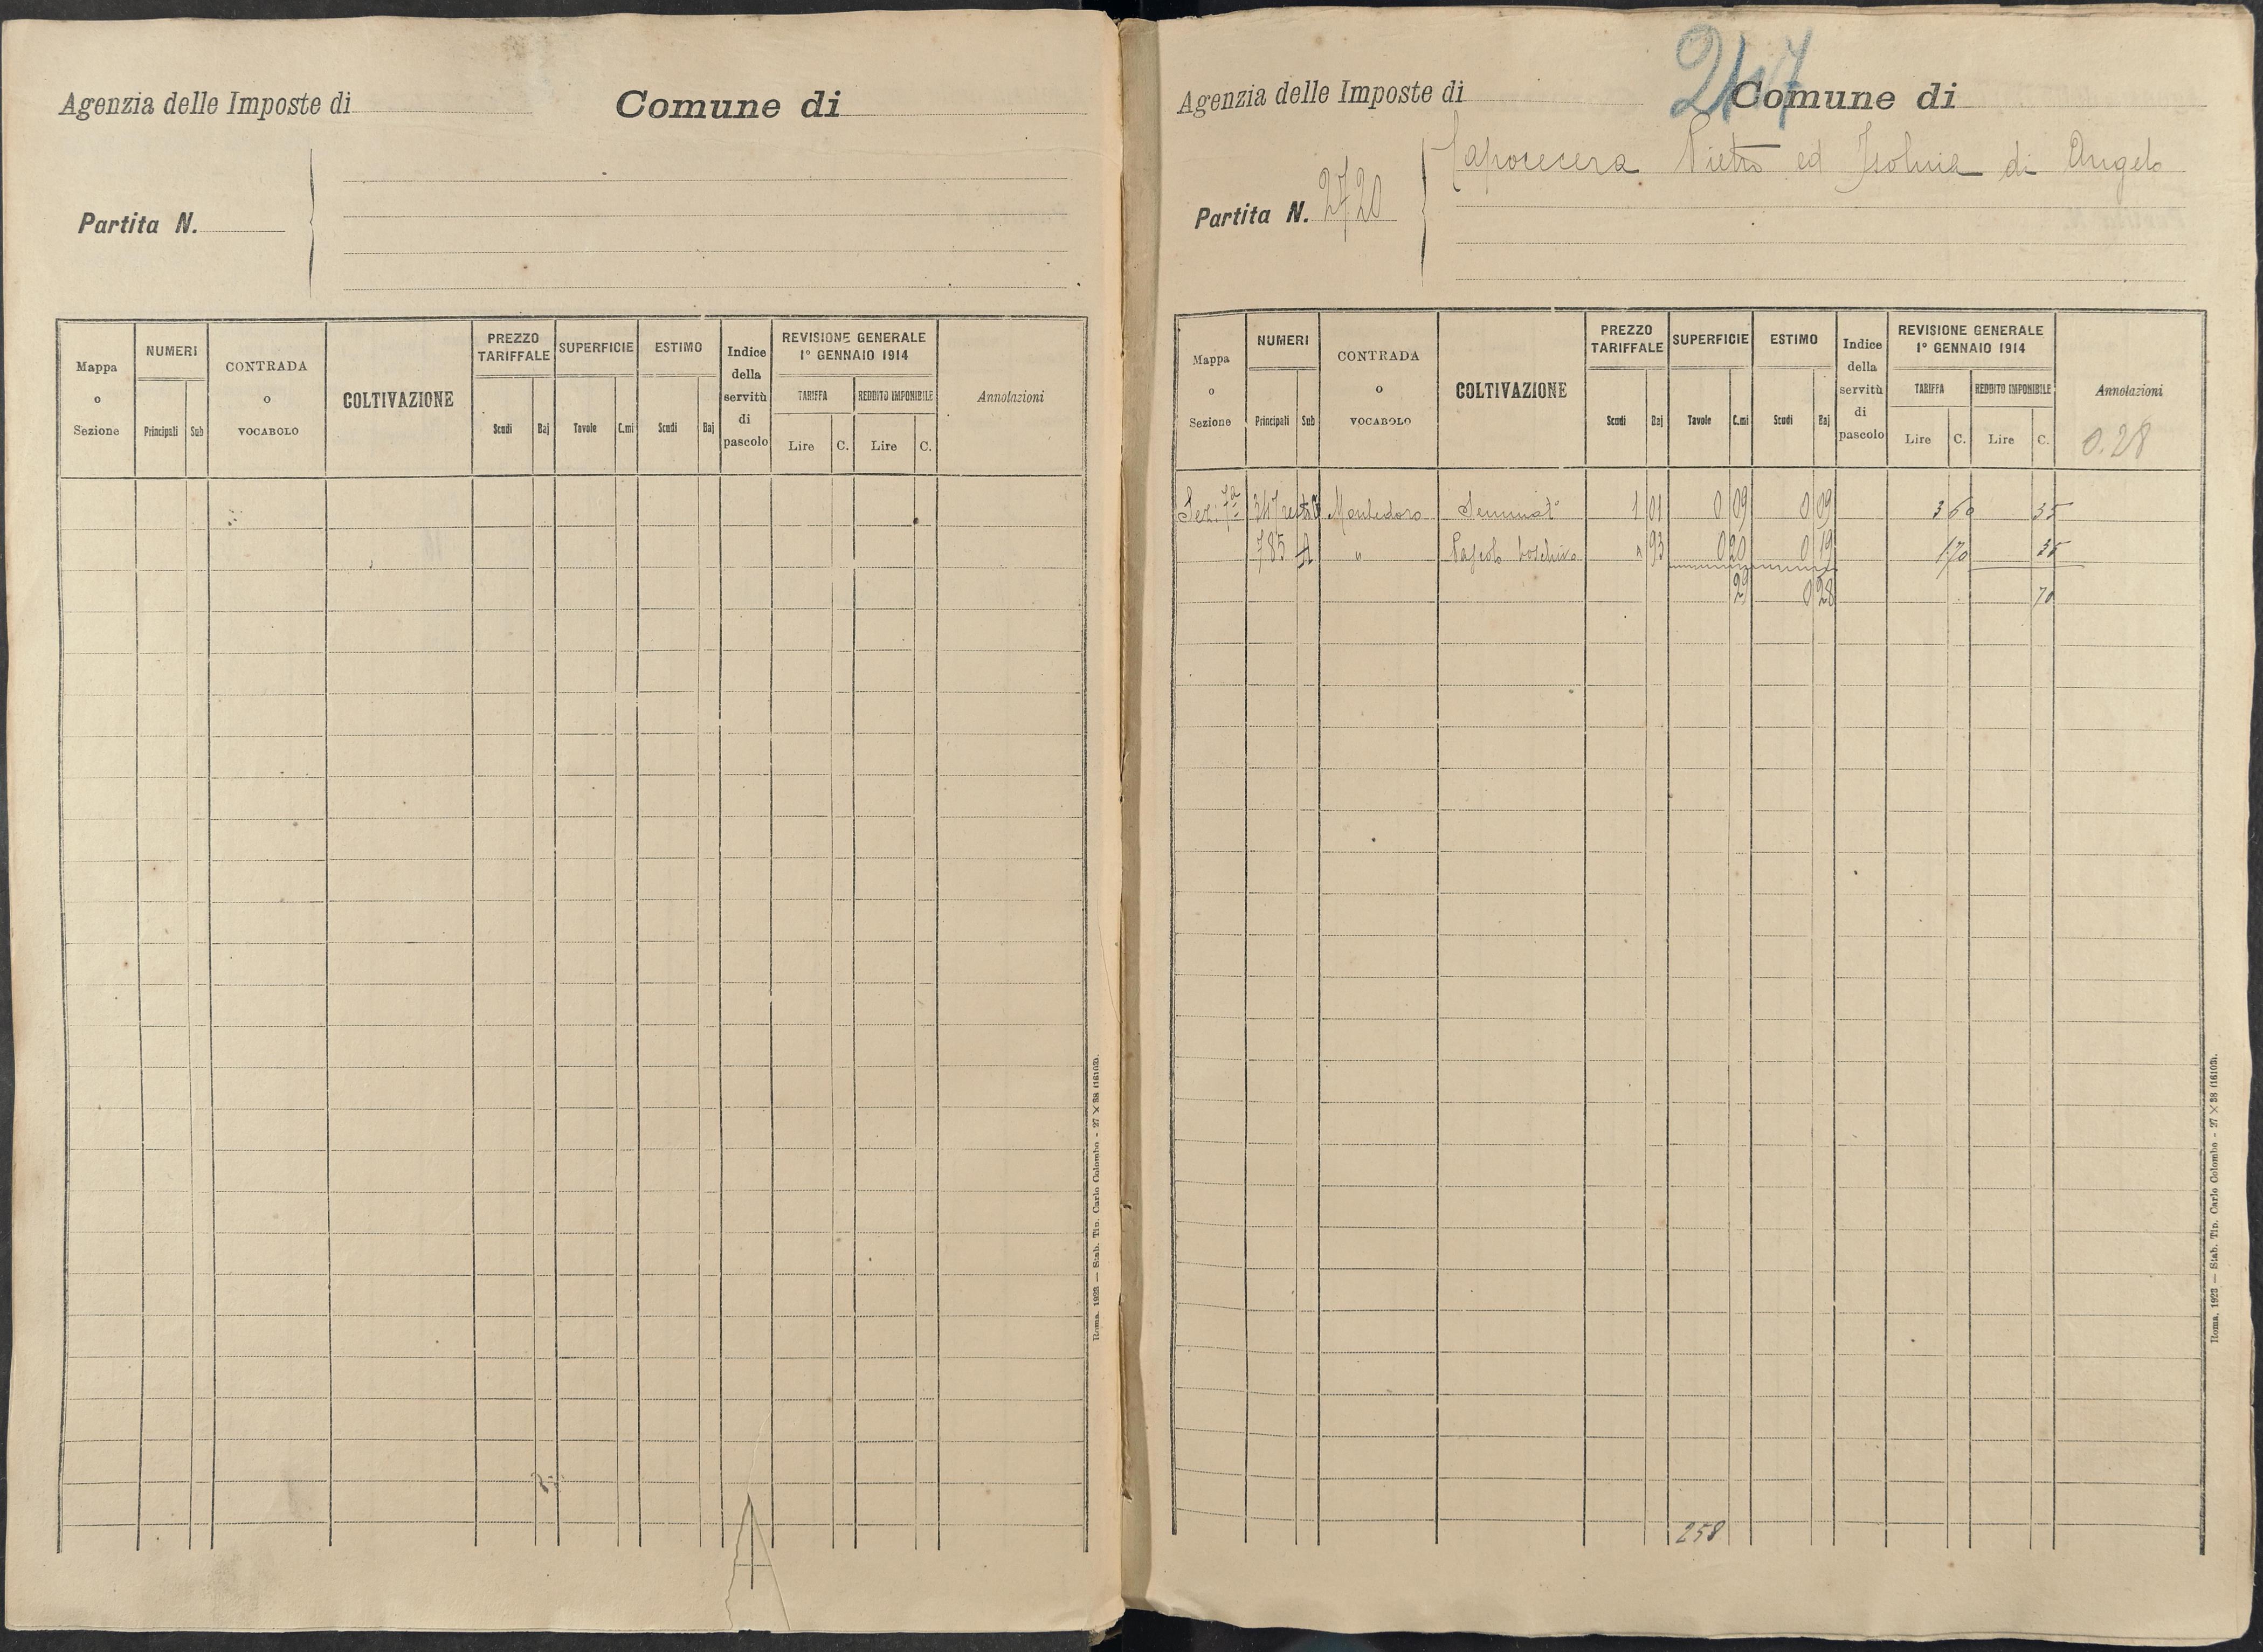 Agenzia delle Imposte di Comune di
Partita N.
Mappa o Sezione NUMERI Principali Sub CONTRADA o VOCABOLO COLTIVAZIONE PREZZO TARIFFALE Scudi Baj SUPERFICIE Tavole C.mi ESTIMO Scudi Baj Indice della servitù di pascolo REVISIONE GENERALE 1° GENNAIO 1914 TARIFFA Lire C. REDDITO IMPONIBILE Lire C. Annotazioni
Roma, 1923 — Stab. Tip. Carlo Colombo - 27 × 38 (16103).
Agenzia delle Imposte di Comune di
Pietro ed di Angelo
Partita N. 2720
Mappa o Sezione NUMERI Principali Sub CONTRADA o VOCABOLO COLTIVAZIONE PREZZO TARIFFALE Scudi Baj SUPERFICIE Tavole C.mi ESTIMO Scudi Baj Indice della servitù di pascolo REVISIONE GENERALE 1° GENNAIO 1914 TARIFFA Lire C. REDDITO IMPONIBILE Lire C. Annotazioni
0.28
Sez: 7a 347 Montedoro Seminat° 1 01 0 09 0 09 3 60 35
785 A " Pascolo boschivo " 93 0 20 0 19 1 70 35
29 0 28 70
258
Roma, 1923 — Stab. Tip. Carlo Colombo - 27 × 38 (16103).